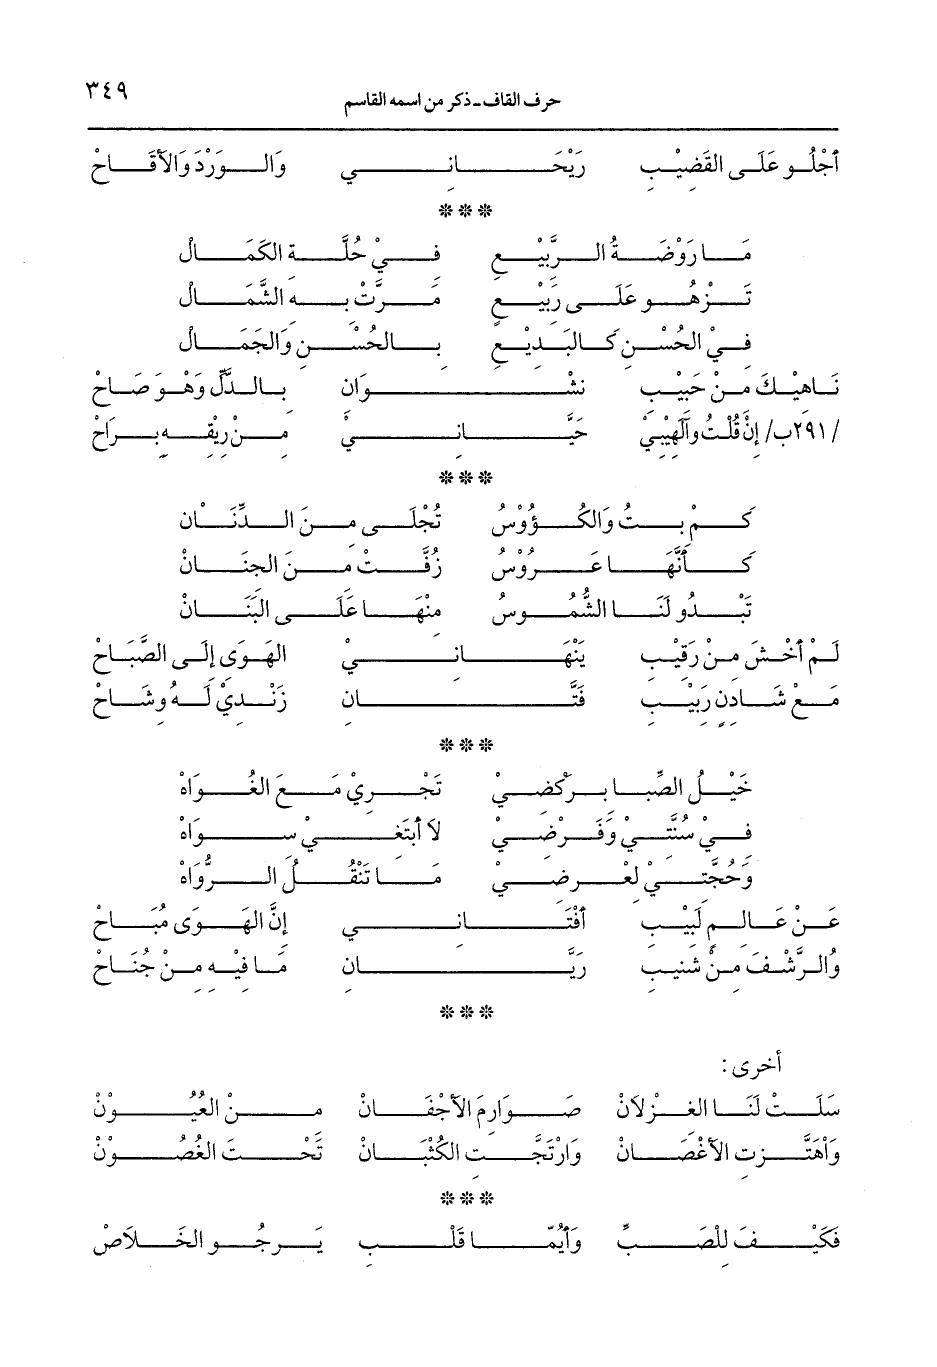 حرف القاف ـ ذكر من اسمه القاسم ٣٤٩
أَجْلُو عَلَى القَضِيْبِ رَيْحَانِي وَالوَرْدَ وَالأَقَاحْ
***
مَا رَوْضَةُ الرَّبِيْعِ فِيْ حُلَّةِ الكَمَالْ
تَزْهُو عَلَى رَبِيْعٍ مَرَّتْ بِهِ الشَّمَالْ
فِيْ الحُسْنِ كَالبَدِيْعِ بِالحُسْنِ وَالجَمَالْ
نَاهِيْكَ مِنْ حَبِيْبِ نشْوَان بِالدَّلِّ وَهْوَ صَاحْ
/٢٩١ب/ إِنْ قُلْتُ وَالَهِيْبِيْ حَيَّانِيْ مِنْ رِيْقِهِ بِرَاحْ
***
كَمْ بِتُ وَالكُؤُوْسُ تُجْلَى مِنَ الدِّنَانْ
كَأَنَّهَا عَرُوْسُ زُفَّتْ مِنَ الجِنَانْ
تَبْدُو لَنَا الشُّمُوسُ مِنْهَا عَلَى البَنَانْ
لَمْ أَخْشَ مِنْ رَقِيْبِ يَنْهَانِيْ الهَوَى إِلَى الصَّبَاحْ
مَعْ شَادِنٍ رَبِيْبِ فَتَّان زَنْدِيْ لَهُ وِشَاحْ
***
خَيْلُ الصِّبَا بِرَكْضِيْ تَجْرِيْ مَعَ الغُوَاهْ
فِيْ سُنَّتِيْ وَفَرْضِيْ لاَ أَبْتَغِيْ سِوَاهْ
وَحُجَّتِيْ لِعْرضِيْ مَا تَنْقُلُ الرُّوَاهْ
عَنْ عَالِمٍ لَبِيْبِ أَفْتَانِي إِنَّ الهَوَى مُبَاحْ
وَالرَّشْفَ مِنْ شَنِيبِ رَيَّانِ مَا فِيْهِ مِنْ جُنَاحْ
***
أخرى:
سَلَتْ لَنَا الغِزْلاَنْ صَوَارِمَ الأَجْفَانْ مِنْ العُيُوْنْ
وَاهْتَّزتِ الأَغْصَانْ وَارْتَجَّتِ الكُثْبَانْ تَحْتَ الغُصُوْنْ
***
فَكَيْفَ لِلْصَبِّ وَأَيُّمَا قَلْبِ يَرجُو الخَلاَصْ